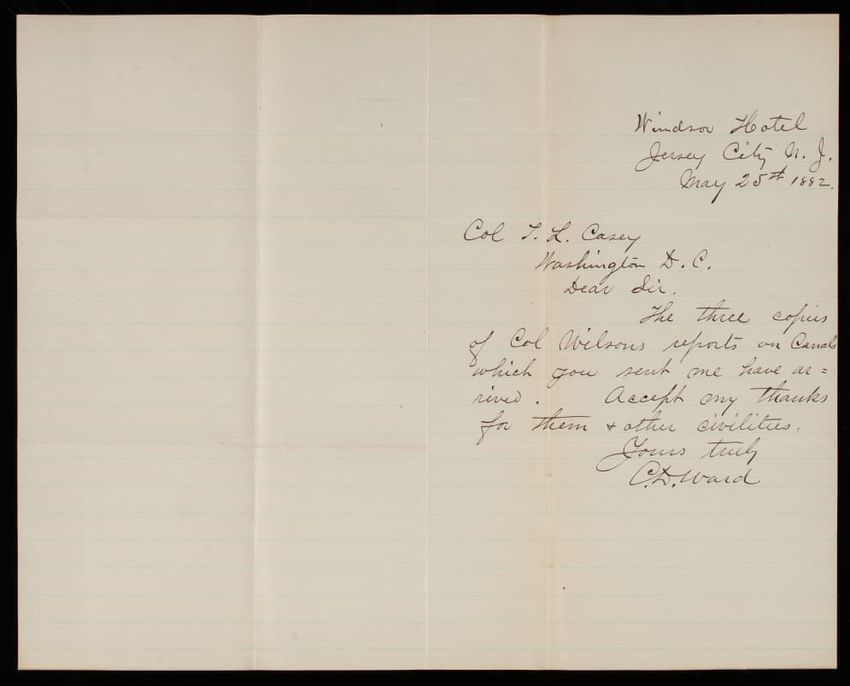 Windsor Hotel
Jersey City N. J.
May 25th 1882.
Col T. L. Casey
Washington D. C.
Dear Sir.
The three copies
of Col Wilsons reports on Canals
which you sent me have ar=
rived. Accept my thanks
for them + other civilities.
Yours truly
C. D. Ward